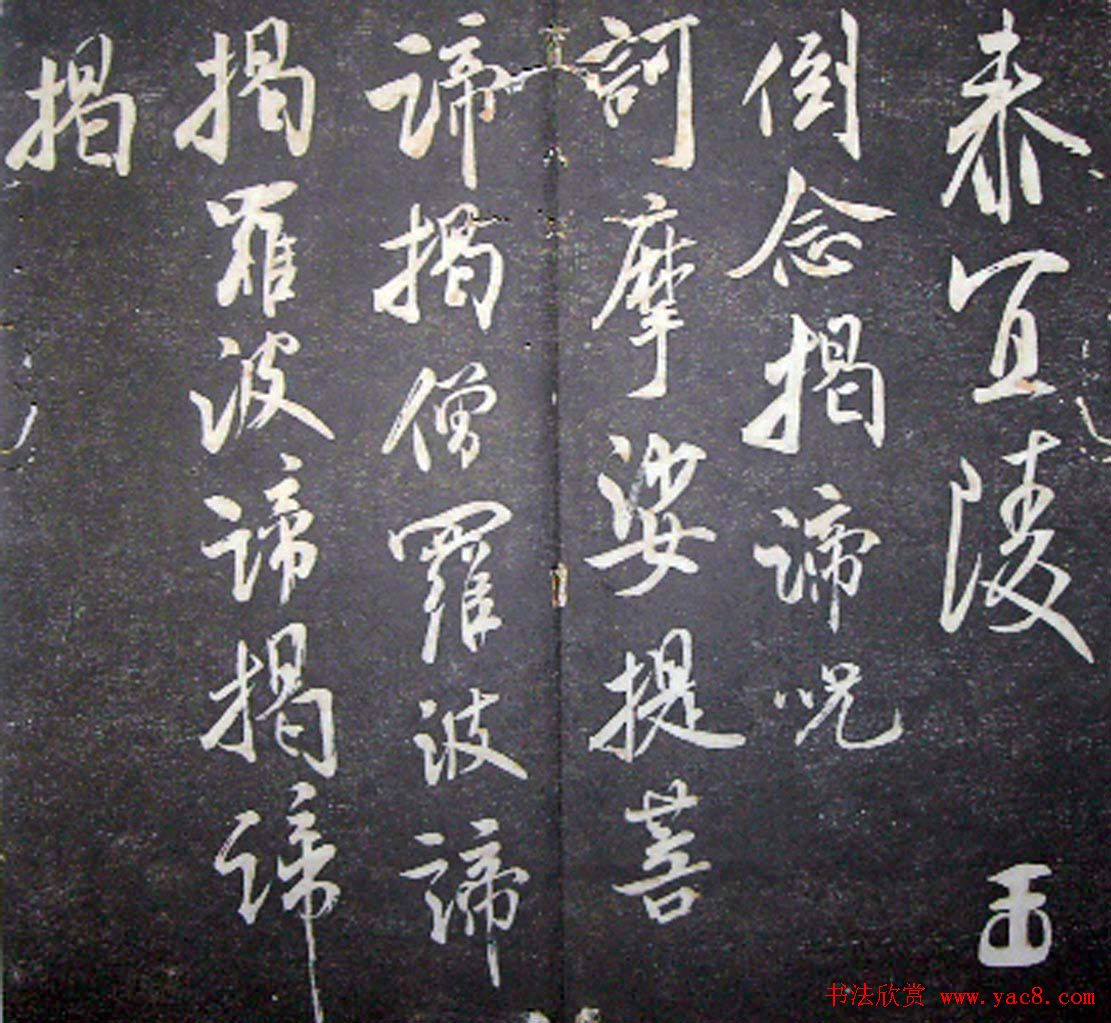 泰宜陵
倒念揭諦呪
訶摩娑提菩
諦揭僧羅波諦
揭羅波諦揭諦
揭
书法欣赏 www.yac8.com